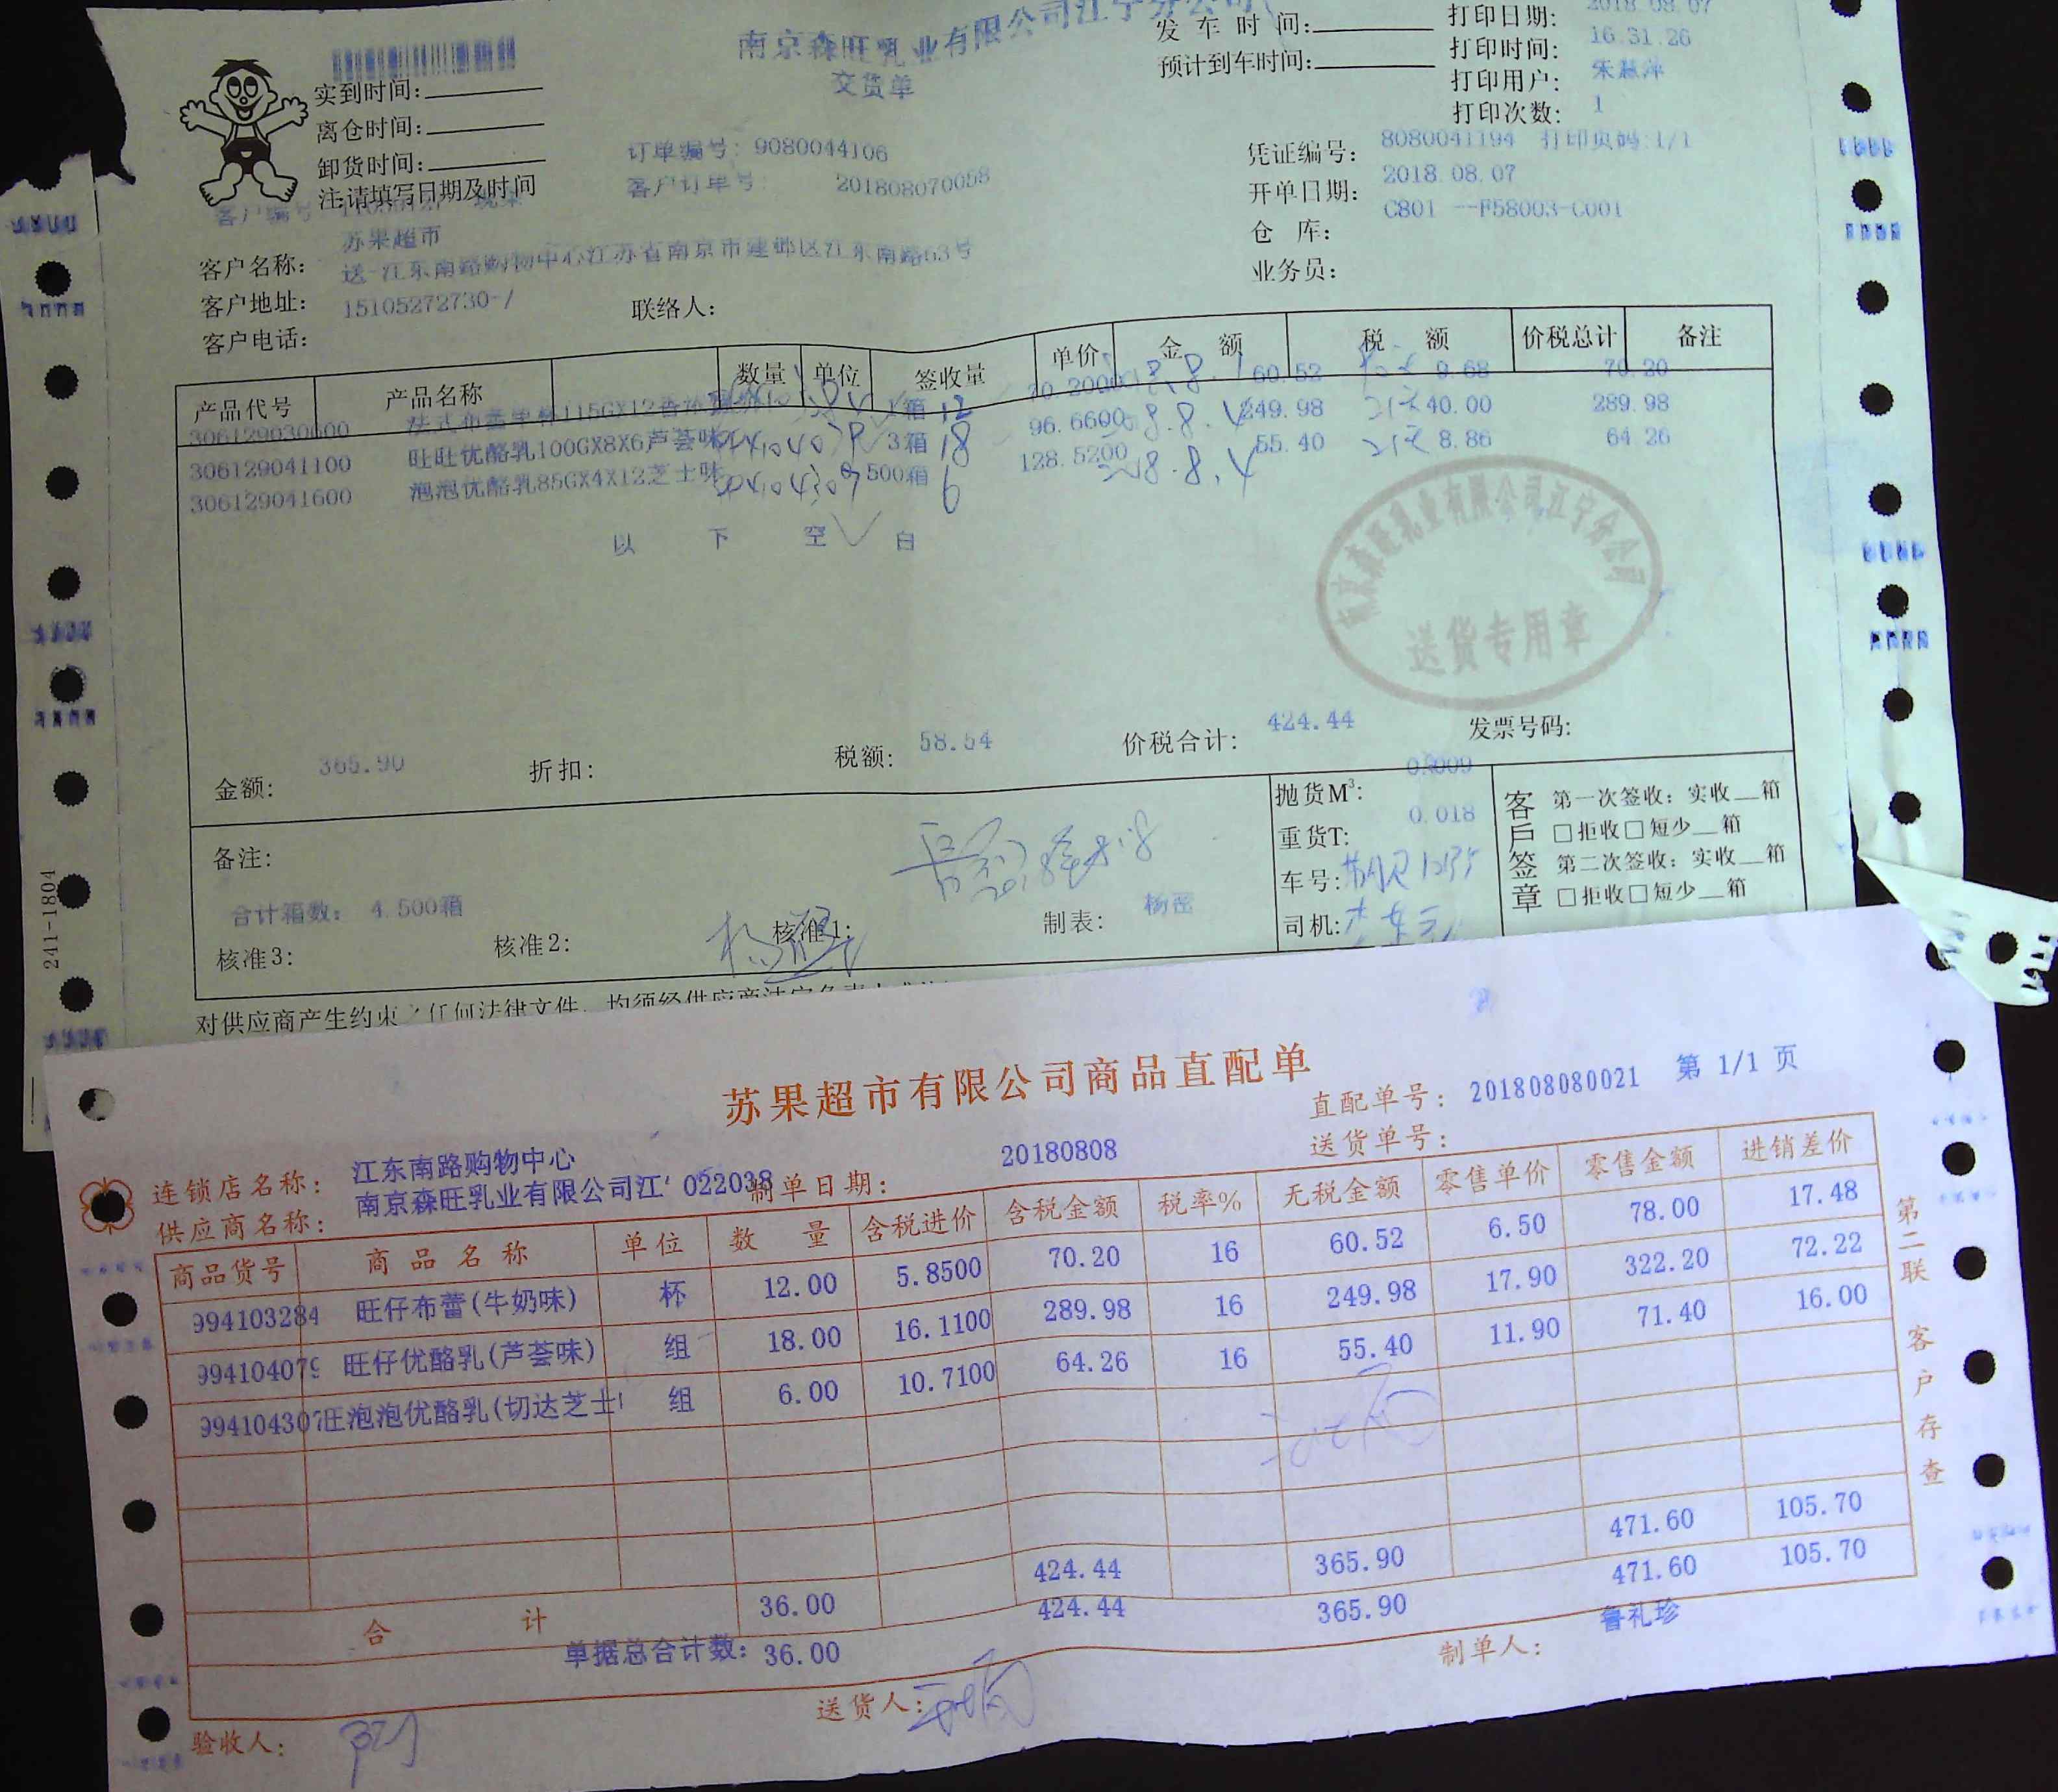 南京森旺乳业有限公司江宁分公司
交货单
实到时间:
离仓时间:
卸货时间:
注:请填写日期及时间
发车时间:
预计到车时间:
打印日期: 2018.08.07
打印时间: 16.31.26
打印用户: 朱慧萍
打印次数: 1
订单编号: 9080044106
客户订单号: 201808070058
凭证编号: 8080041194 打印页码:1/1
开单日期: 2018.08.07
仓 库: C801 --F58003-C001
业务员:
客户编号
客户名称: 苏果超市
客户地址: 送-江东南路购物中心江苏省南京市建邺区江东南路63号
客户电话: 15105272730-/
联络人:
产品代号 产品名称 数量 单位 签收量 单价 金 额 税 额 价税总计 备注
306129030600 115GX12 1箱 12 70.2000 60.52 9.68 70.20
306129041100 旺旺优酪乳100GX8X6芦荟味 3箱 18 96.6600 249.98 40.00 289.98
306129041600 泡泡优酪乳85GX4X12芝士味 500箱 6 128.5200 55.40 8.86 64.26
以 下 空 白
南京森旺乳业有限公司江宁分公司
送货专用章
金额: 365.90 折扣: 税额: 58.54 价税合计: 424.44 发票号码:
备注:
合计箱数: 4.500箱
核准3: 核准2: 核准1: 制表: 杨密
抛货M³: 0.009
重货T: 0.018
车号:
司机:
客戶签章
第一次签收: 实收__箱
□拒收□短少__箱
第二次签收: 实收__箱
□拒收□短少__箱
2411-1804
对供应商产生约束之任何法律文件，均须经供应商
苏果超市有限公司商品直配单
直配单号: 201808080021 第 1/1 页
送货单号:
连锁店名称: 江东南路购物中心
供应商名称: 南京森旺乳业有限公司江' 022038 制单日期: 20180808
商品货号 商品名称 单位 数 量 含税进价 含税金额 税率% 无税金额 零售单价 零售金额 进销差价
994103284 旺仔布蕾(牛奶味) 杯 12.00 5.8500 70.20 16 60.52 6.50 78.00 17.48
994104079 旺仔优酪乳(芦荟味) 组 18.00 16.1100 289.98 16 249.98 17.90 322.20 72.22
994104307 旺泡泡优酪乳(切达芝士 组 6.00 10.7100 64.26 16 55.40 11.90 71.40 16.00
合 计 36.00 424.44 365.90 471.60 105.70
单据总合计数: 36.00 424.44 365.90 471.60 105.70
验收人: 送货人: 制单人: 鲁礼珍
第二联 客户存查